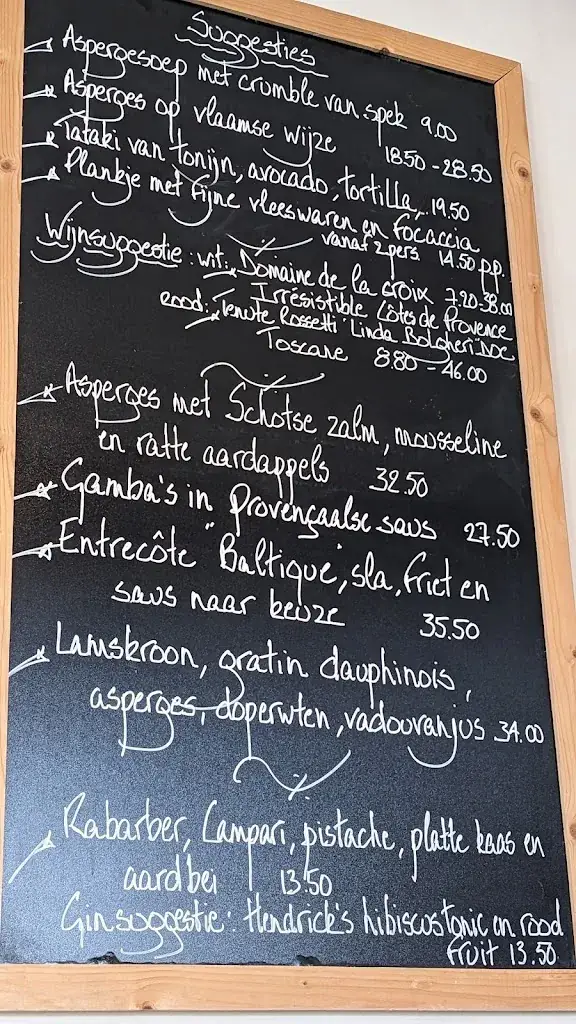 Suggesties
Aspergesoep met crumble van spek 9.00
Asperges op vlaamse wijze 18.50 - 28.50
Tataki van tonijn, avocado, tortilla,.. 19.50
Plankje met fijne vleeswaren en focaccia
vanaf 2 pers 14.50 pp.
Wijnsuggestie: wit: Domaine de la croix 7.20-38.00
Irresistible Côtes de Provence
rood: Tenute Rossetti Linda Bolgheri DOC
Toscane 8.80 - 46.00
Asperges met Schotse zalm, mousseline
en ratte aardappels 32.50
Gamba's in Provençaalse saus 27.50
Entrecôte "Baltique", sla, friet en
saus naar keuze 35.50
Lamskroon, gratin dauphinois,
asperges, doperwten, vadouvanjus 34.00
Rabarber, Campari, pistache, platte kaas en
aardbei 13.50
Ginsuggestie: Hendrick's hibiscustonic en rood
fruit 13.50